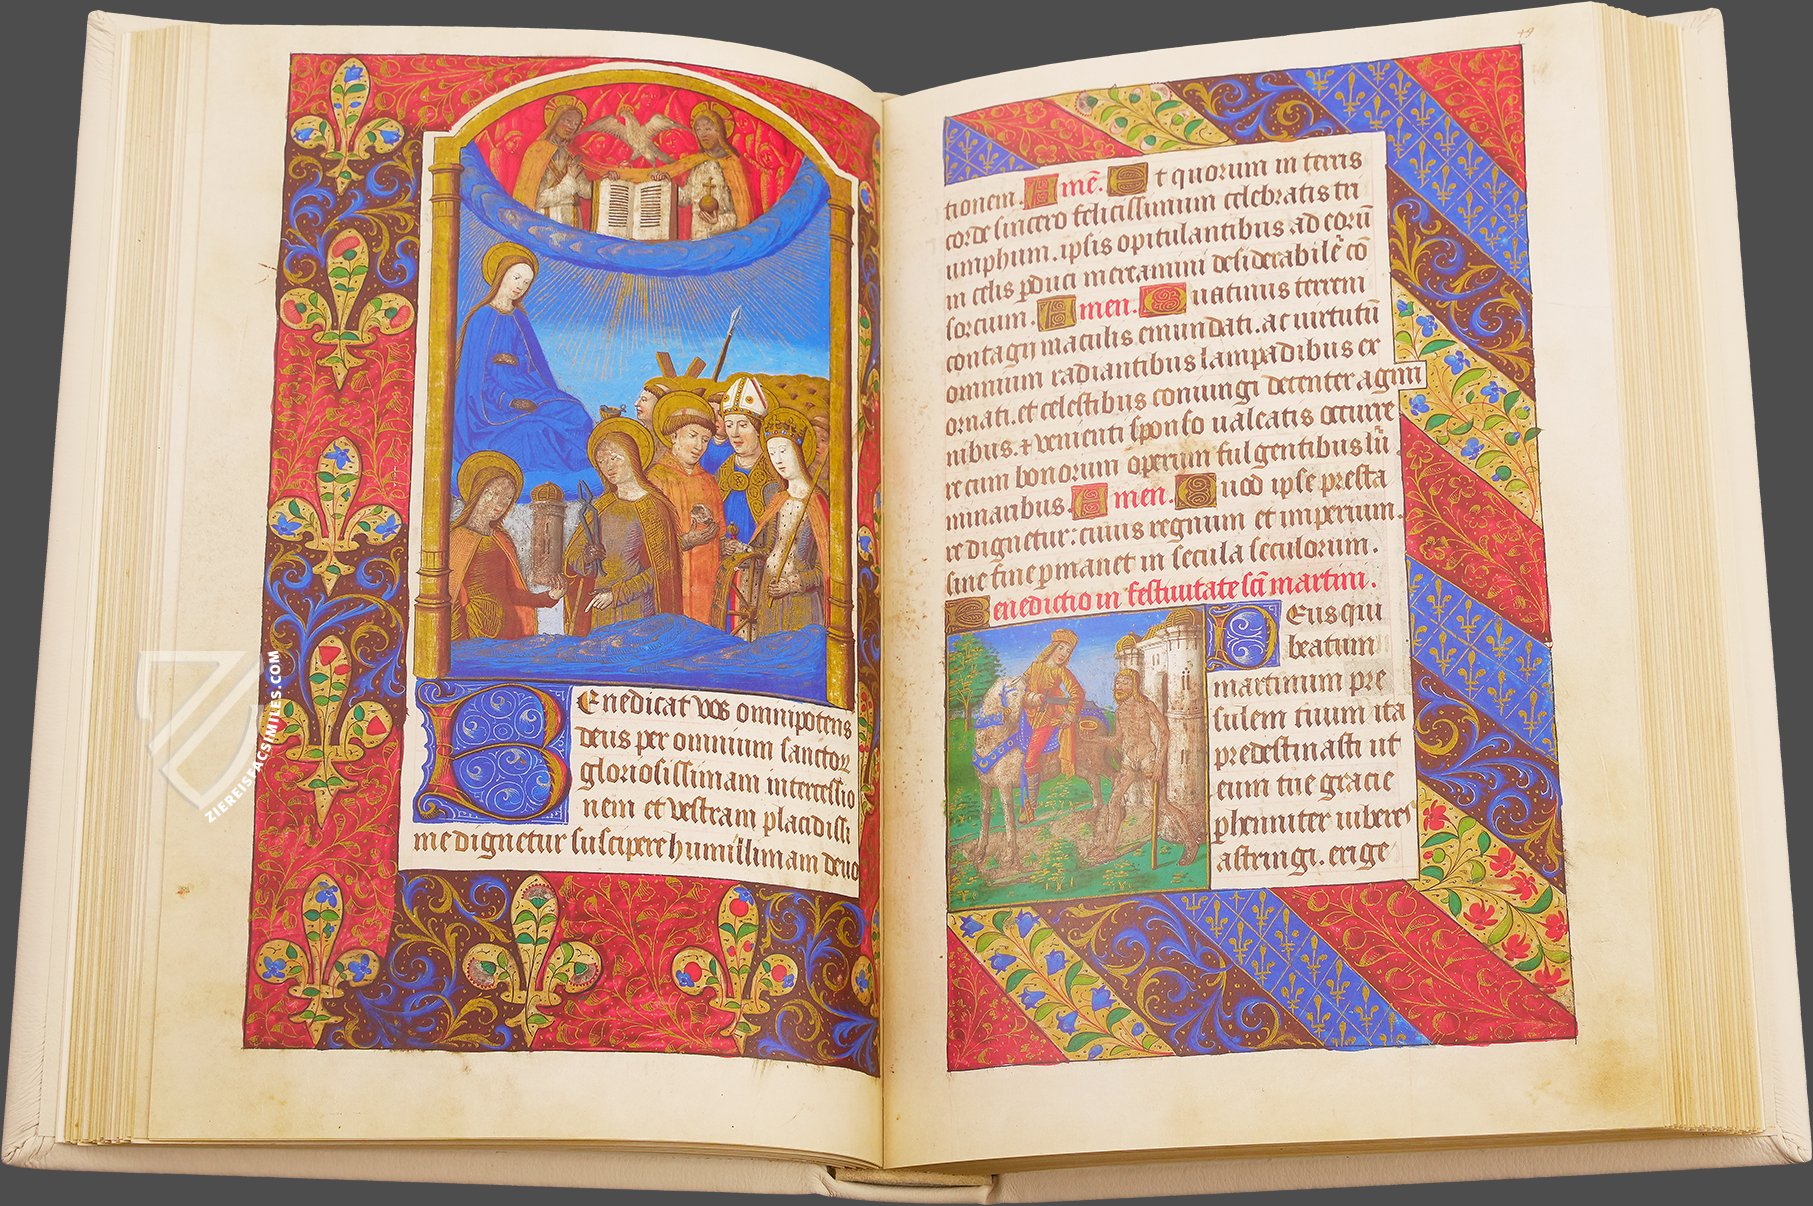 Enedicat vos omnipotens
deus per omnium sanctoꝝ
gloriosissimam intercessio
nem et vestram placidissi
me dignetur suscipere humillimam deuo
49
tionem. Amē. Et quorum in terris
corde sincero felicissimum celebratis tri
umphum. ipsis opitulantibus ad eorū
in celis ꝑduci mereamini desiderabilē cō
sorcium. Amen. Quatinus terreni
contagij maculis emundati. ac uirtutū
omnium radiantibus lampadibus ex
ornati. et celestibus coniungi decenter agmi
nibus. ⁊ venienti sponso ualeatis occurre
re cum bonorum operum fulgentibus lu
minaribus. Amen. Quod ipse presta
re dignetur: cuius regnum et imperium.
sine fine ꝑmanet in secula seculorum.
Benedictio in festiuitate scī martini.
Deus qui
beatum
martinum pre
sulem tuum ita
predestinasti ut
eum tue gracie
ꝑhenniter iuberes
astringi. erige
ZIEREISFACSIMILES.COM